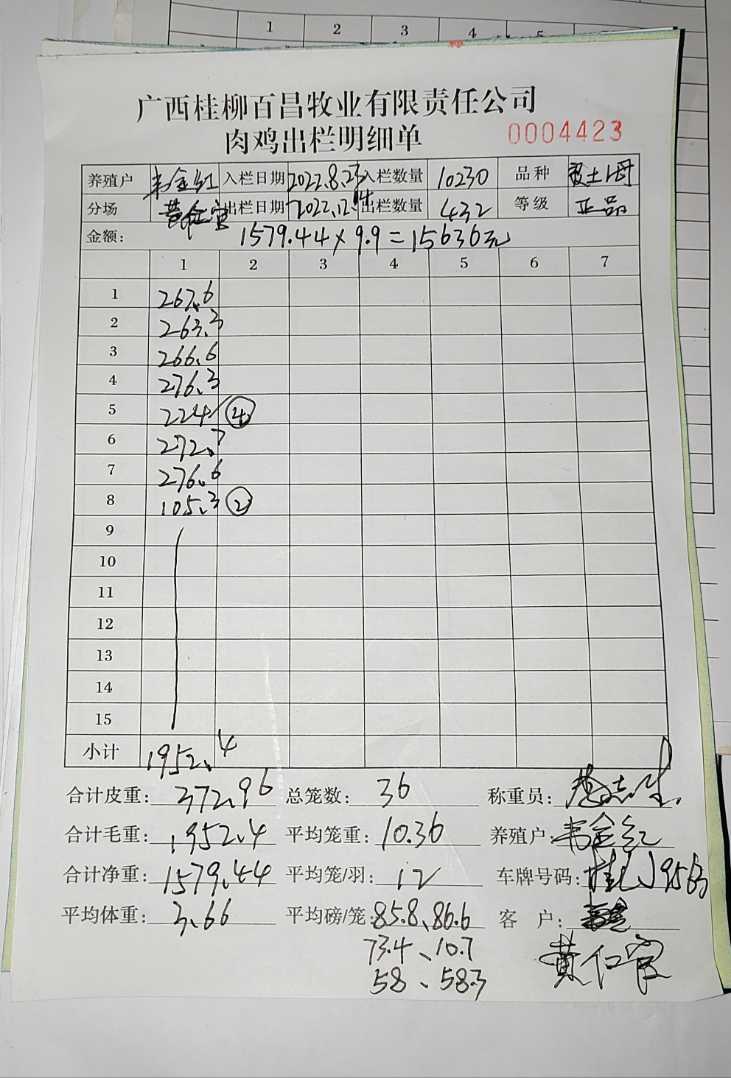 1 2 3 4 5
广西桂柳百昌牧业有限责任公司
肉鸡出栏明细单 0004423
养殖户 韦金红 入栏日期 2022.8.23 入栏数量 10230 品种
分场 黄仁官 出栏日期 2022.12.14 出栏数量 432 等级 正品
金额: 1579.44×9.9=15636元
1 2 3 4 5 6 7
1 267.6
2 263.3
3 266.6
4 276.3
5 224 ④
6 272.7
7 276.6
8 105.3 ②
9
10
11
12
13
14
15
小计 1952.4
合计皮重: 372.96 总笼数: 36 称重员:
合计毛重: 1952.4 平均笼重: 10.36 养殖户: 韦金红
合计净重: 1579.44 平均笼/羽: 12 车牌号码:
平均体重: 3.66 平均磅/笼: 85.8、86.6 客 户:
73.4、10.7 黄仁官
58、58.3